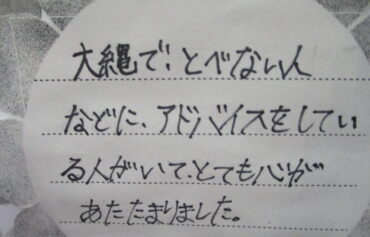 大縄で、とべない人
などに、アドバイスをしてい
る人がいて、とても心が
あたたまりました。